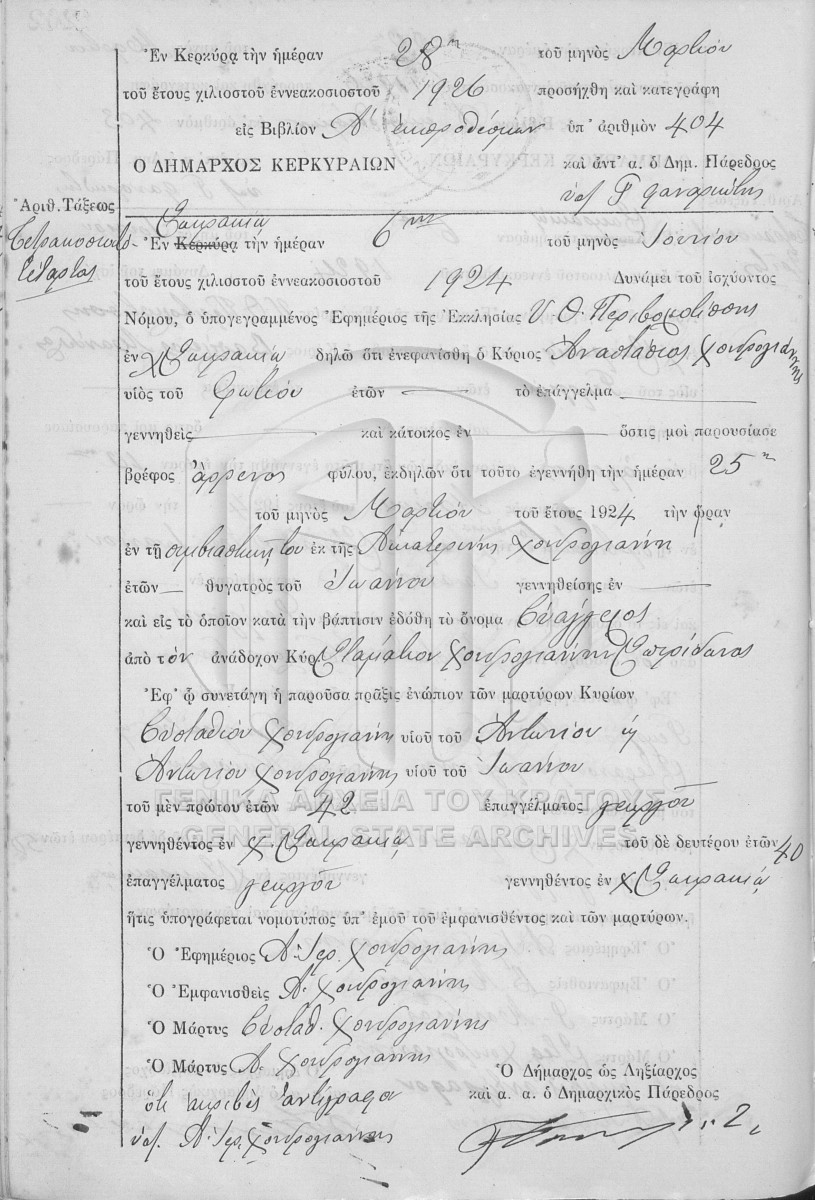 Ἐν Κερκύρᾳ τὴν ἡμέραν 28η τοῦ μηνὸς Μαρτίου
τοῦ ἔτους χιλιοστοῦ ἐννεακοσιοστοῦ 1926 προσήχθη καὶ κατεγράφη
εἰς Βιβλίον Α ἐκπροθέσμων ὑπ' ἀριθμὸν 404
Ο ΔΗΜΑΡΧΟΣ ΚΕΡΚΥΡΑΙΩΝ καὶ ἀντ' α. ὁ Δημ. Πάρεδρος
Ἀριθ. Τάξεως
Τετρακοσιοστὸς
τέταρτος
Ἐν Κερκύρᾳ τὴν ἡμέραν 6ην τοῦ μηνὸς Ἰουνίου
τοῦ ἔτους χιλιοστοῦ ἐννεακοσιοστοῦ 1924 Δυνάμει τοῦ ἰσχύοντος
Νόμου, ὁ ὑπογεγραμμένος Ἐφημέριος τῆς Ἐκκλησίας Υ. Θ. Περιβλεπτου
ἐν δηλῶ ὅτι ἐνεφανίσθη ὁ Κύριος Ἀναστάσιος Χονδρογιάννης
υἱὸς τοῦ Φωτίου ἐτῶν — τὸ ἐπάγγελμα —
γεννηθεὶς — καὶ κάτοικος ἐν — ὅστις μοι παρουσίασε
βρέφος ἄρρενος φύλου, ἐκδηλῶν ὅτι τοῦτο ἐγεννήθη τὴν ἡμέραν 25η
τοῦ μηνὸς Μαρτίου τοῦ ἔτους 1924 τὴν ὥραν
ἐν τῇ συμβιωτικῇ του ἐκ τῆς Αἰκατερίνης Χονδρογιάννη
ἐτῶν — θυγατρὸς τοῦ Ἰωάννου γεννηθείσης ἐν —
καὶ εἰς τὸ ὁποῖον κατὰ τὴν βάπτισιν ἐδόθη τὸ ὄνομα Εὐάγγελος
ἀπὸ τὸν ἀνάδοχον Κύρ. Σταμάτιον Χονδρογιάννην Σπυρίδωνος
Ἐφ' ᾧ συνετάγη ἡ παροῦσα πρᾶξις ἐνώπιον τῶν μαρτύρων Κυρίων
Εὐσταθίου Χονδρογιάννη υἱοῦ τοῦ Ἀντωνίου
Ἀντωνίου Χονδρογιάννη υἱοῦ τοῦ Ἰωάννου
τοῦ μὲν πρώτου ἐτῶν 42 ἐπαγγέλματος γεωργοῦ
γεννηθέντος ἐν τοῦ δὲ δευτέρου ἐτῶν 40
ἐπαγγέλματος γεωργοῦ γεννηθέντος ἐν
ἥτις ὑπογράφεται νομοτύπως ὑπ' ἐμοῦ τοῦ ἐμφανισθέντος καὶ τῶν μαρτύρων.
Ὁ Ἐφημέριος Α. Ἱερ. Χονδρογιάννης
Ὁ Ἐμφανισθεὶς Α. Χονδρογιάννης
Ὁ Μάρτυς Εὐσταθ. Χονδρογιάννης
Ὁ Μάρτυς Α. Χονδρογιάννης
Ὁ Δήμαρχος ὡς Ληξίαρχος
καὶ α. α. ὁ Δημαρχικὸς Πάρεδρος
ὅτι ἀκριβὲς ἀντίγραφον
υπ. Α. Ἱερ. Χονδρογιάννης
ΓΕΝΙΚΑ ΑΡΧΕΙΑ ΤΟΥ ΚΡΑΤΟΥΣ
GENERAL STATE ARCHIVES